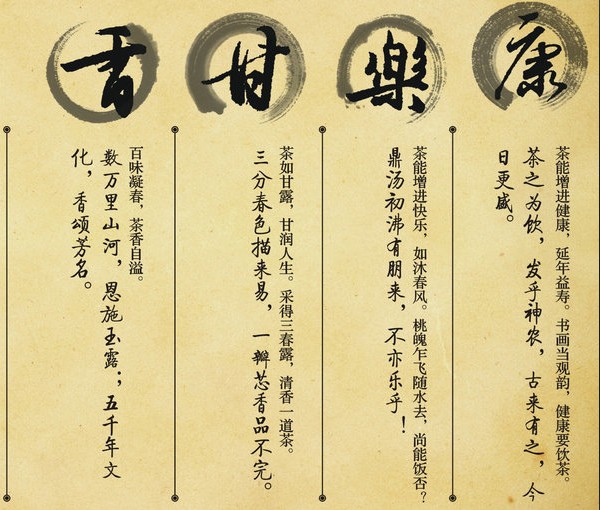 康
茶能增进健康，延年益寿。书画当观韵，健康要饮茶。
茶之为饮，发乎神农，古来有之，今
日更盛。
樂
茶能增进快乐，如沐春风。桃魄乍飞随水去，尚能饭否？
鼎汤初沸有朋来，不亦乐乎！
甘
茶如甘露，甘润人生。采得三春露，清香一道茶。
三分春色描来易，一瓣芯香品不完。
香
百味凝春，茶香自溢。
数万里山河，恩施玉露；五千年文
化，香颂芳名。